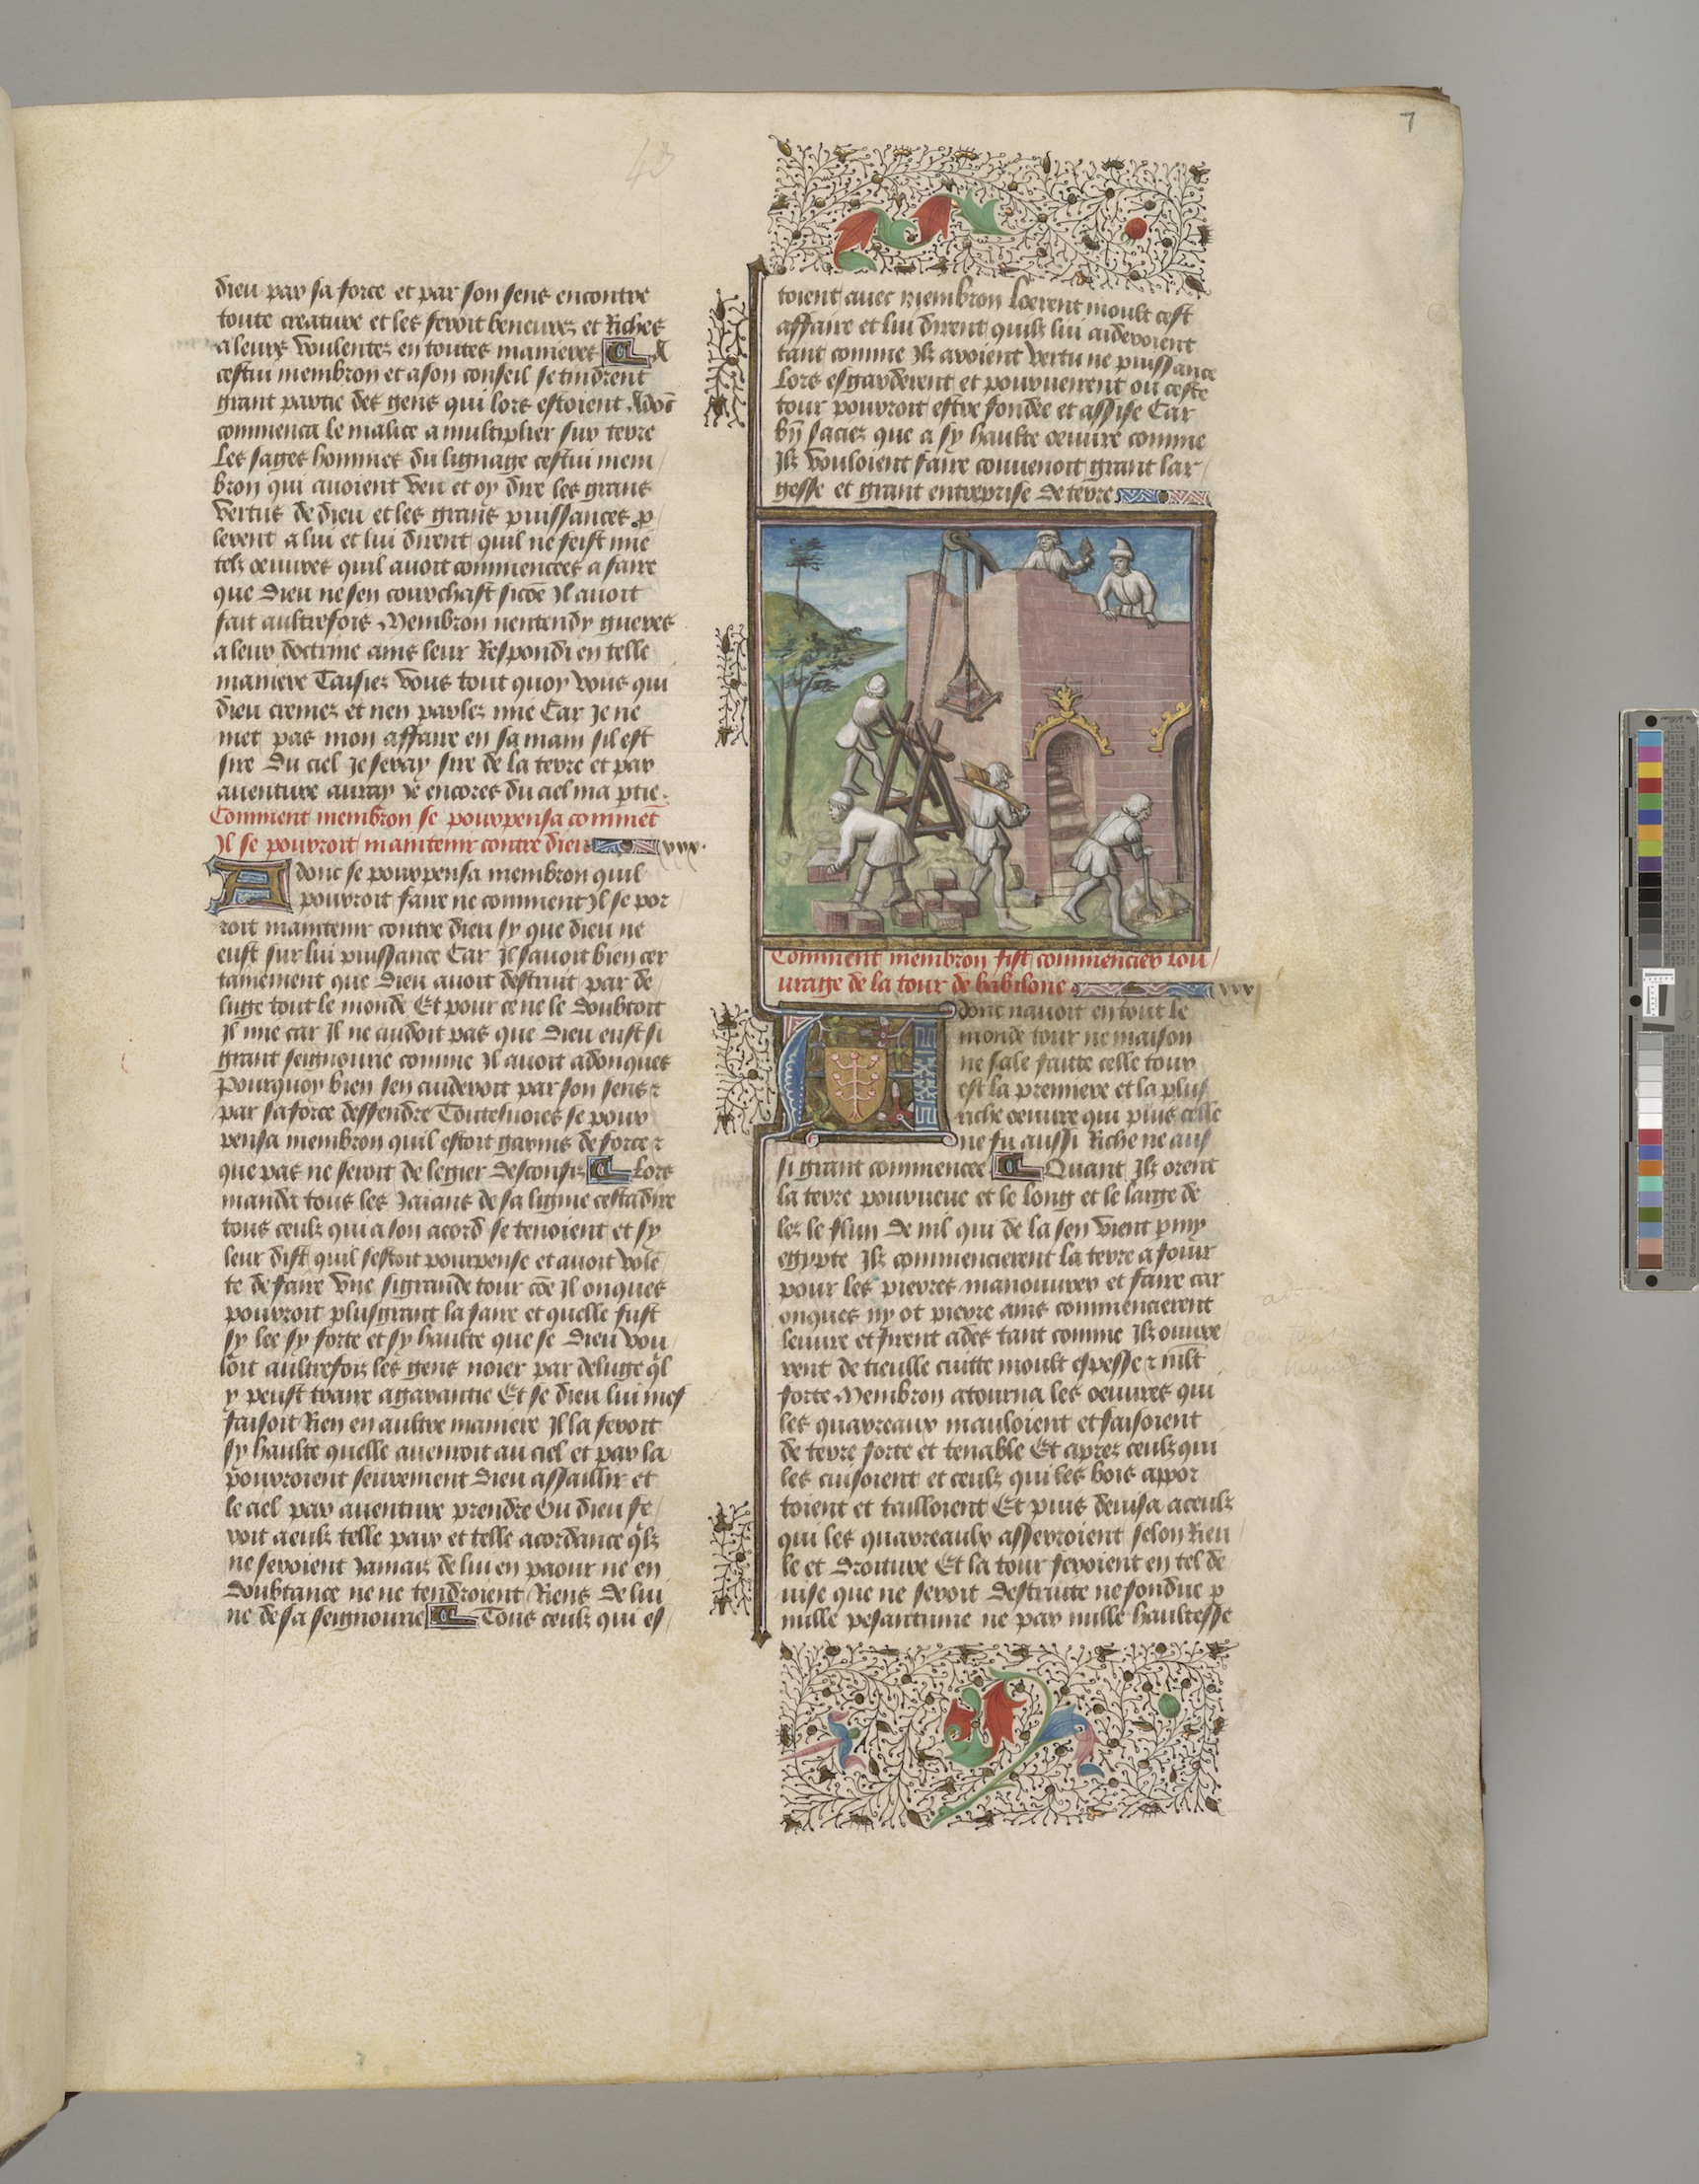 7
dieu par sa force et par son sens encontre
toute creature et les feroit beneurez et Riches
a leurs voulentez en toutes manieres A
cestui membron et a son conseil se tindrent
grant partie des gens qui lors estoient Adoc
commenca le malice a multiplier sur terre
Les sages hommes du lignage cestui mem
bron qui auoient veu et oy dire les grans
vertus de dieu et les grans puissances p
lerent a lui et lui dirent quil ne feist mie
telz oeuures quil auoit commencees a faire
que dieu ne sen courchast sicõe Il auoit
fait aultrefois Membron nentendy gueres
a leur doctrine ains leur Respondi en telle
maniere Taisiez vous tout quoy vous qui
dieu cremez et nen parlez mie Car Je ne
met pas mon affaire en sa main sil est
sire du ciel Je seray sire de la terre et par
auenture auray Je encores du ciel ma ptie.
Comment membron se pourpensa commẽt
Il se pourroit maintenir contre dieu xxx.
Adonc se pourpensa membron quil
pourroit faire ne comment Il se por
roit maintenir contre dieu sy que dieu ne
eust sur lui puissance Car Il sauoit bien cer
tainement que dieu auoit destruit par de
luge tout le monde Et pour ce ne le doubtoit
Il mie car Il ne cuidoit pas que dieu eust si
grant seignourie comme Il auoit adonques
Pourquoy bien sen cuideroit par son sens ⁊
par sa force deffendre Toutesuoies se pour
pensa membron quil estoit garnis de force ⁊
que pas ne seroit de legier desconfiz Lors
manda tous les Jaians de sa lignie cestadire
tous ceulz qui a son acord se tenoient et sy
leur dist quil sestoit pourpense et auoit volẽ
te de faire vne si grande tour cõe Il onques
pourroit plus grant la faire et quelle fust
sy lee sy forte et sy haulte que se dieu vou
loit aultrefois les gens noier par deluge ql
y peust traire a garantie Et se dieu lui mes
faisoit Rien en aultre maniere Il la feroit
sy haulte quelle auenroit au ciel et par la
pourroient seurement dieu assaillir et
le ciel par auenture prendre Ou dieu fe
roit a eulz telle paix et telle acordance qlz
ne seroient Jamais de lui en paour ne en
doubtance ne ne tendroient Riens de lui
ne de sa seignourie Tous ceulz qui es
toient auec membron loerent moult cest
affaire et lui dirent quilz lui aideroient
tant comme Ilz auoient vertu ne puissance
Lors esgarderent et pourueirent ou ceste
tour pourroit estre fondee et assise Car
bñ saciez que a sy haulte oeuure comme
Ilz vouloient faire couuenoit grant lar
gesse et grant entreprise de terre
Comment membron fist commencier lou
urage de la tour de babilone xxxj
Adonc nauoit en tout le
monde tour ne maison
ne sale faitte celle tour
est la premiere et la plus
riche oeuure qui puis celle
ne fu aussi Riche ne aus
si grant commencee Quant Ilz orent
la terre pourueue et le long et le large de
lez le flun de nil qui de la sen vient pmy
egypte Ilz commencierent la terre a fouir
pour les pierres manouurer et faire car
onques ny ot pierre ains commencierent
leuure et firent ades tant comme Ilz ouure
rent de tieulle cuitte moult espesse ⁊ mlt
forte Membron atourna les oeuures qui
les quarreaux mauloient et faisoient
de terre forte et tenable Et aprez ceulz qui
les cuisoient et ceulz qui les bois appor
toient et tailloient Et puis deuisa a ceulz
qui les quarreaulx asserroient selon Rieu
le et droiture Et la tour feroient en tel de
uise que ne seroit destruite ne fondue p
nulle pesantume ne par nulle haultesse